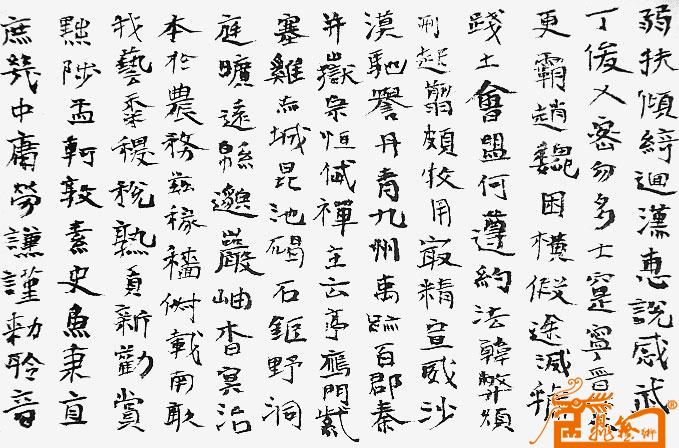 弱扶傾綺迴漢惠說感武
丁俊乂密勿多士寔寧晉楚
更霸趙魏困橫假途滅虢
踐土會盟何遵約法韓弊煩
刑起翦頗牧用㝡精宣威沙
漠馳譽丹青九州禹跡百郡秦
并嶽宗恒岱禪主云亭鴈門紫
塞雞赤城昆池碣石鉅野洞
庭曠遠緜邈巖岫杳冥治
本於農務茲稼穡俶載南畝
我藝黍稷稅熟貢新勸賞
黜陟孟軻敦素史魚秉直
庶幾中庸勞謙謹勅聆音